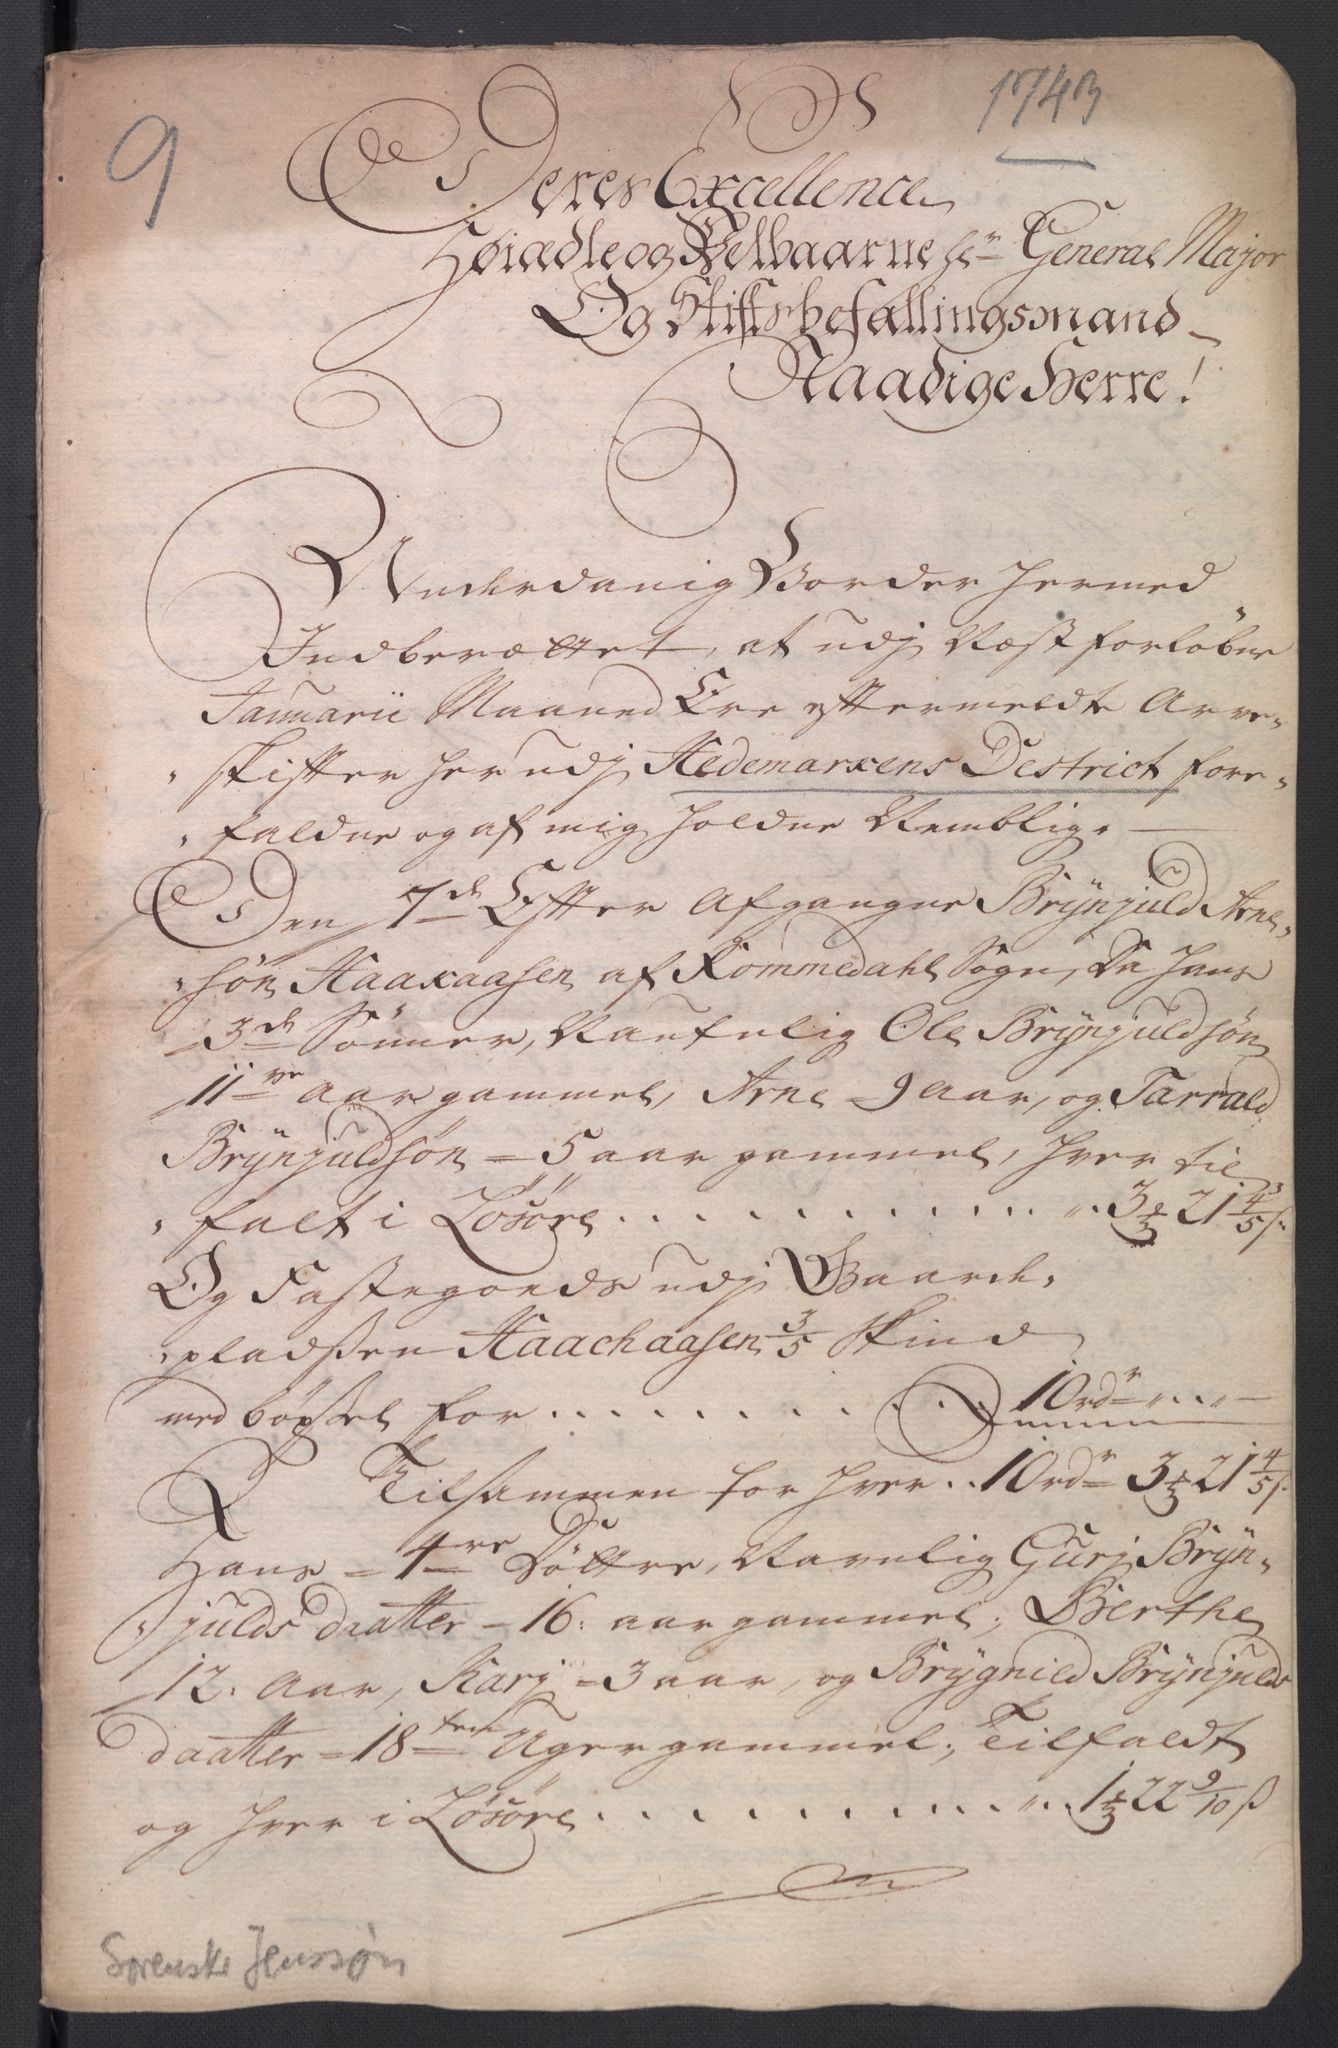 9
1743
Deres Excellence
Høiædle og Velbaarne Hr General Major
Og Stiftsbefallingsmand
Naadige Herre!
Underdanig Vorder hermed
Indberættet, at udj Næst forløbne
Januarii Maaned Ere eftermeldte Arve-
skifter her udj Hedemarkens Destrict fore-
faldne og af mig holdne Nemblig.
Den 7de Efter Afgangne Brÿnjuld Arne-
søn Haakaasen af Rommedahls Sogn, Da hans
3de Sönner, Naufnlig Ole Brÿnjuldsøn
11ve aar gammel, Arne 9 aar, og Tarrald
Brÿnjuldsøn 5 aar gammel, hver til
falt i Løsøre . . . 3 ꝑ 21 4/5 ß
Og Fastegoeds udj Gaarde
pladssen Haachaasen 3/5 Skind
med böxsel for . . . 10 rdr " . . "
Tilsammen for hver . . 10 rdr 3 ꝑ 21 4/5 ß.
Hans 4re Döttre, Navnlig Gurj Brÿn-
julds daatter 16: aar gammel; Berthe
12. Aar, Karj 3 aar, og Brÿgnild Brÿnjulds
daatter 18ten Uger gammel; Tilfaldt
og hver i Løsøre . . . 1 ꝑ 22 9/10 ß
Sorenskr Jenssøn